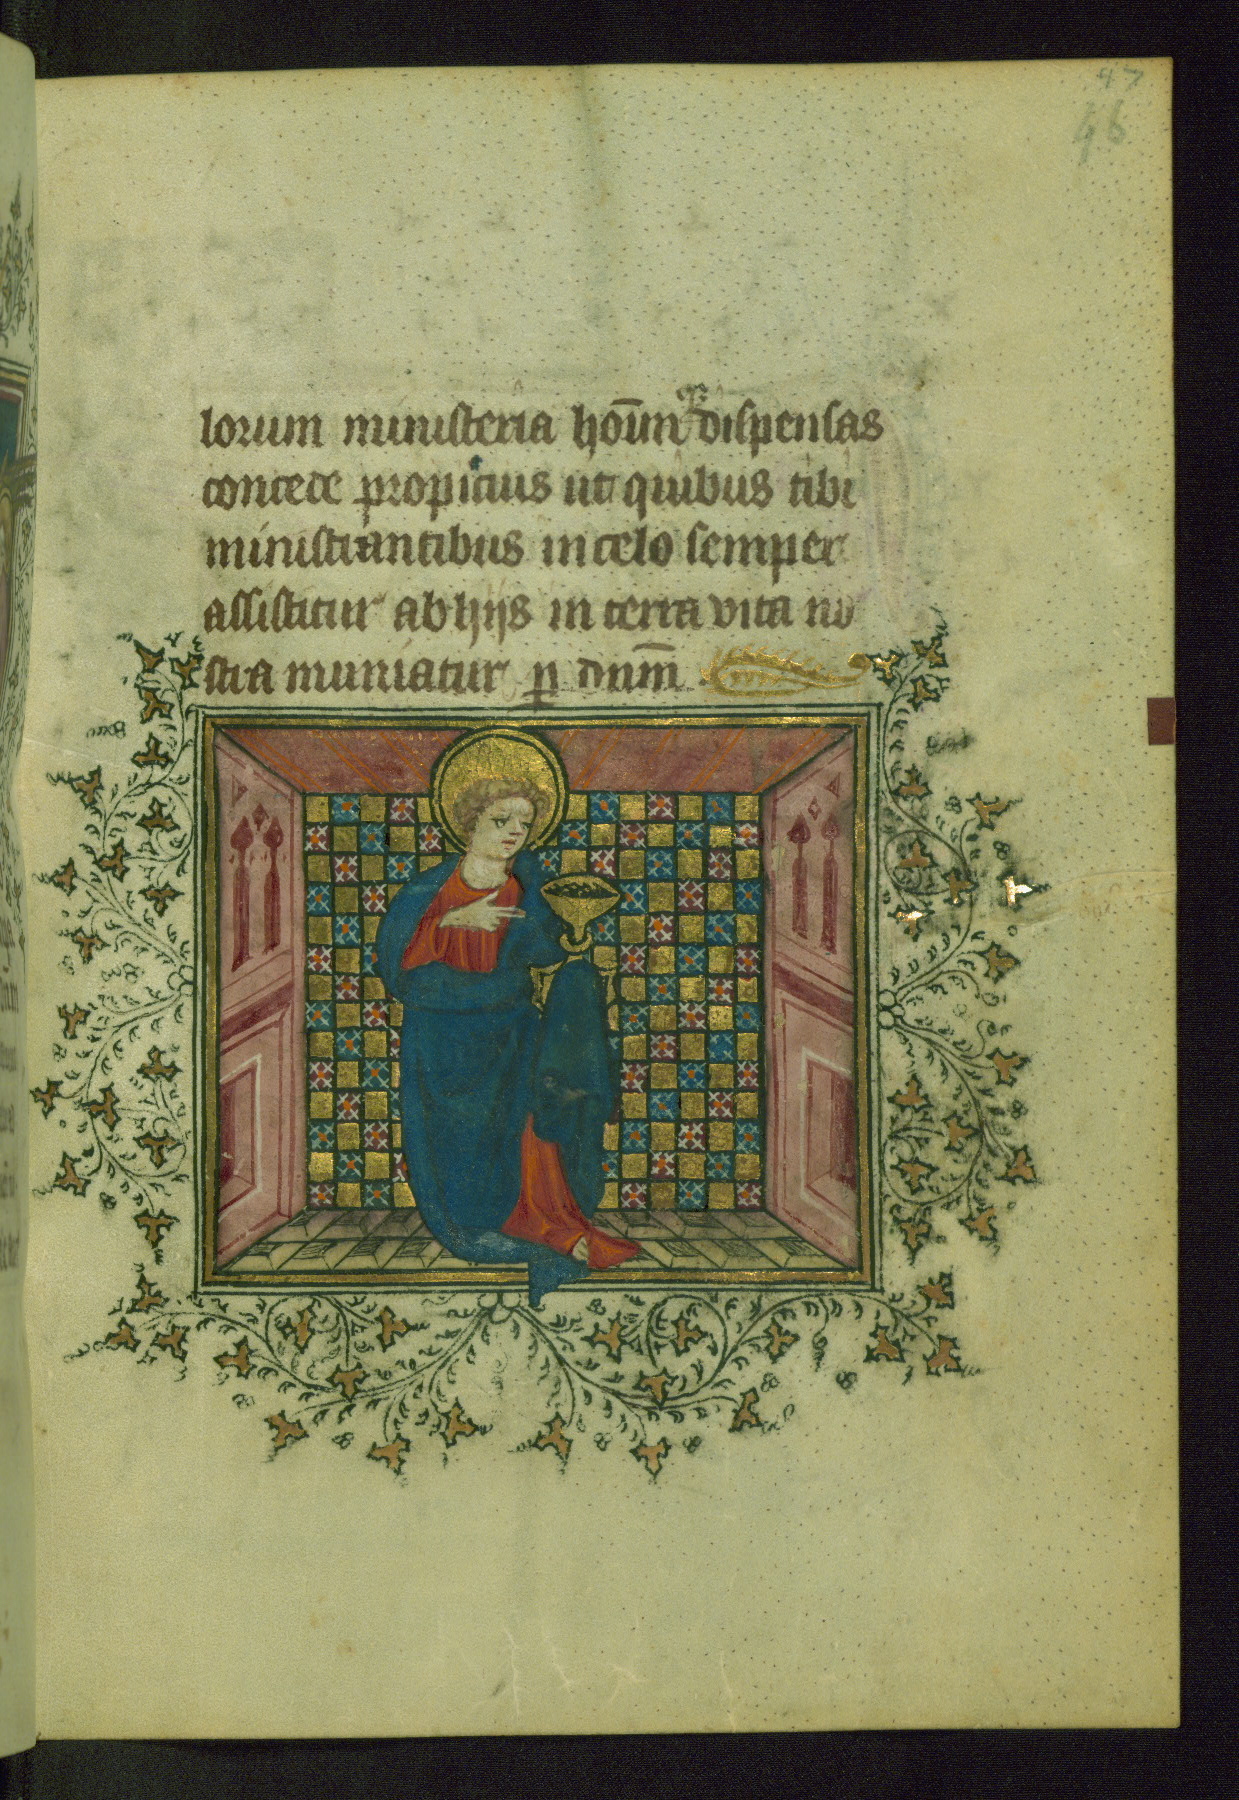 47
46
lorum ministeria hoi̅um q̅ dispensas
concede propicius ut quibus tibi
ministrantibus in celo semper
assistitur ab hijs in terra vita no
stra muniatur ꝑ dnm̅